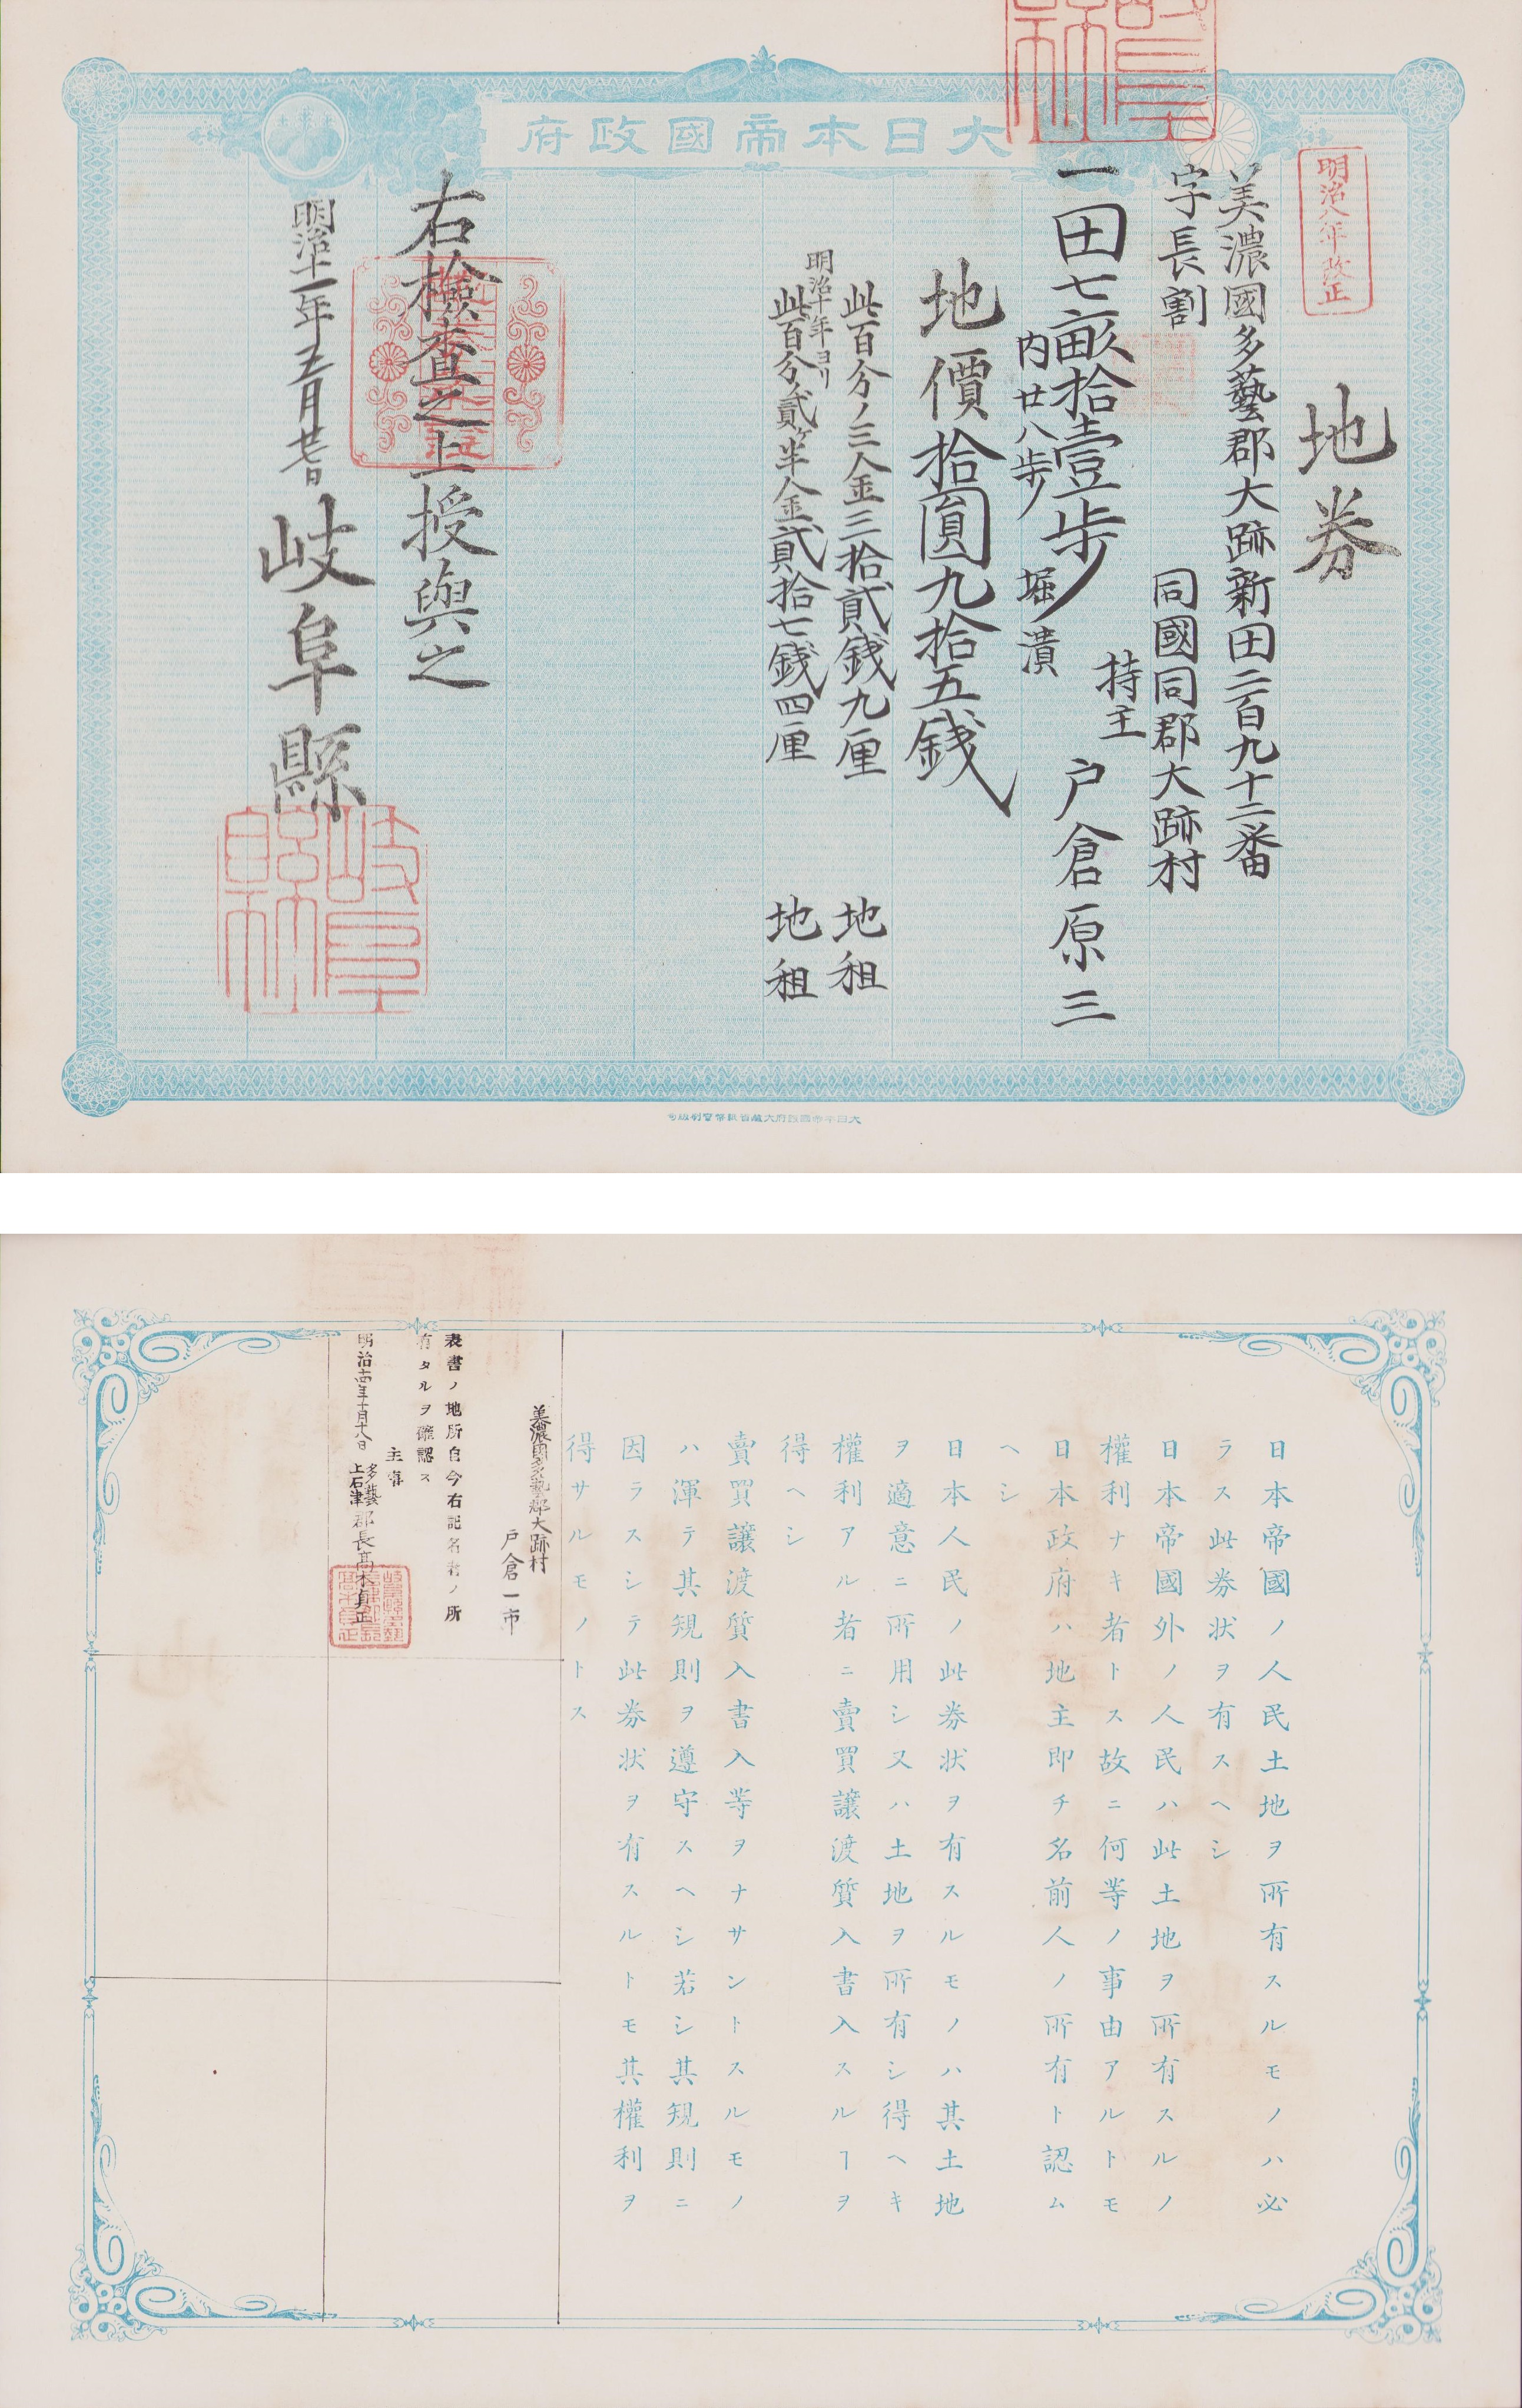 大日本帝國政府
明治八年改正
地券
美濃國多藝郡大跡新田二百九十二番
字長割
同國同郡大跡村
持主 戸倉原三
一田七畝拾壹歩
内廿八歩 堀潰
地價拾圓九拾五錢
此百分ノ三金三拾貳錢九厘 地租
明治十年ヨリ
此百分ノ貳ケ半金貳拾七錢四厘 地租
右檢査之上授與之
明治十一年五月廿七日
岐阜縣
岐阜縣印
大日本帝國政府大藏省紙幣寮製造
日本帝國ノ人民土地ヲ所有スルモノハ必
ラス此券状ヲ有スヘシ
日本帝國外ノ人民ハ此土地ヲ所有スルノ
權利ナキ者トス故ニ何等ノ事由アルトモ
日本政府ハ地主即チ名前人ノ所有ト認ム
ヘシ
日本人民ノ此券状ヲ有スルモノハ其土地
ヲ適意ニ所用シ又ハ土地ヲ所有シ得ヘキ
權利アル者ニ賣買譲渡質入書入スルヿヲ
得ヘシ
賣買譲渡質入書入等ヲナサントスルモノ
ハ渾テ其規則ヲ遵守スヘシ若シ其規則ニ
因ラスシテ此券状ヲ有スルトモ其權利ヲ
得サルモノトス
美濃國多藝郡大跡村
戸倉一市
表書ノ地所自今右記名者ノ所
有タルヲ確認ス
主事
明治十四年十月十八日 多藝上石津郡長髙木貞正